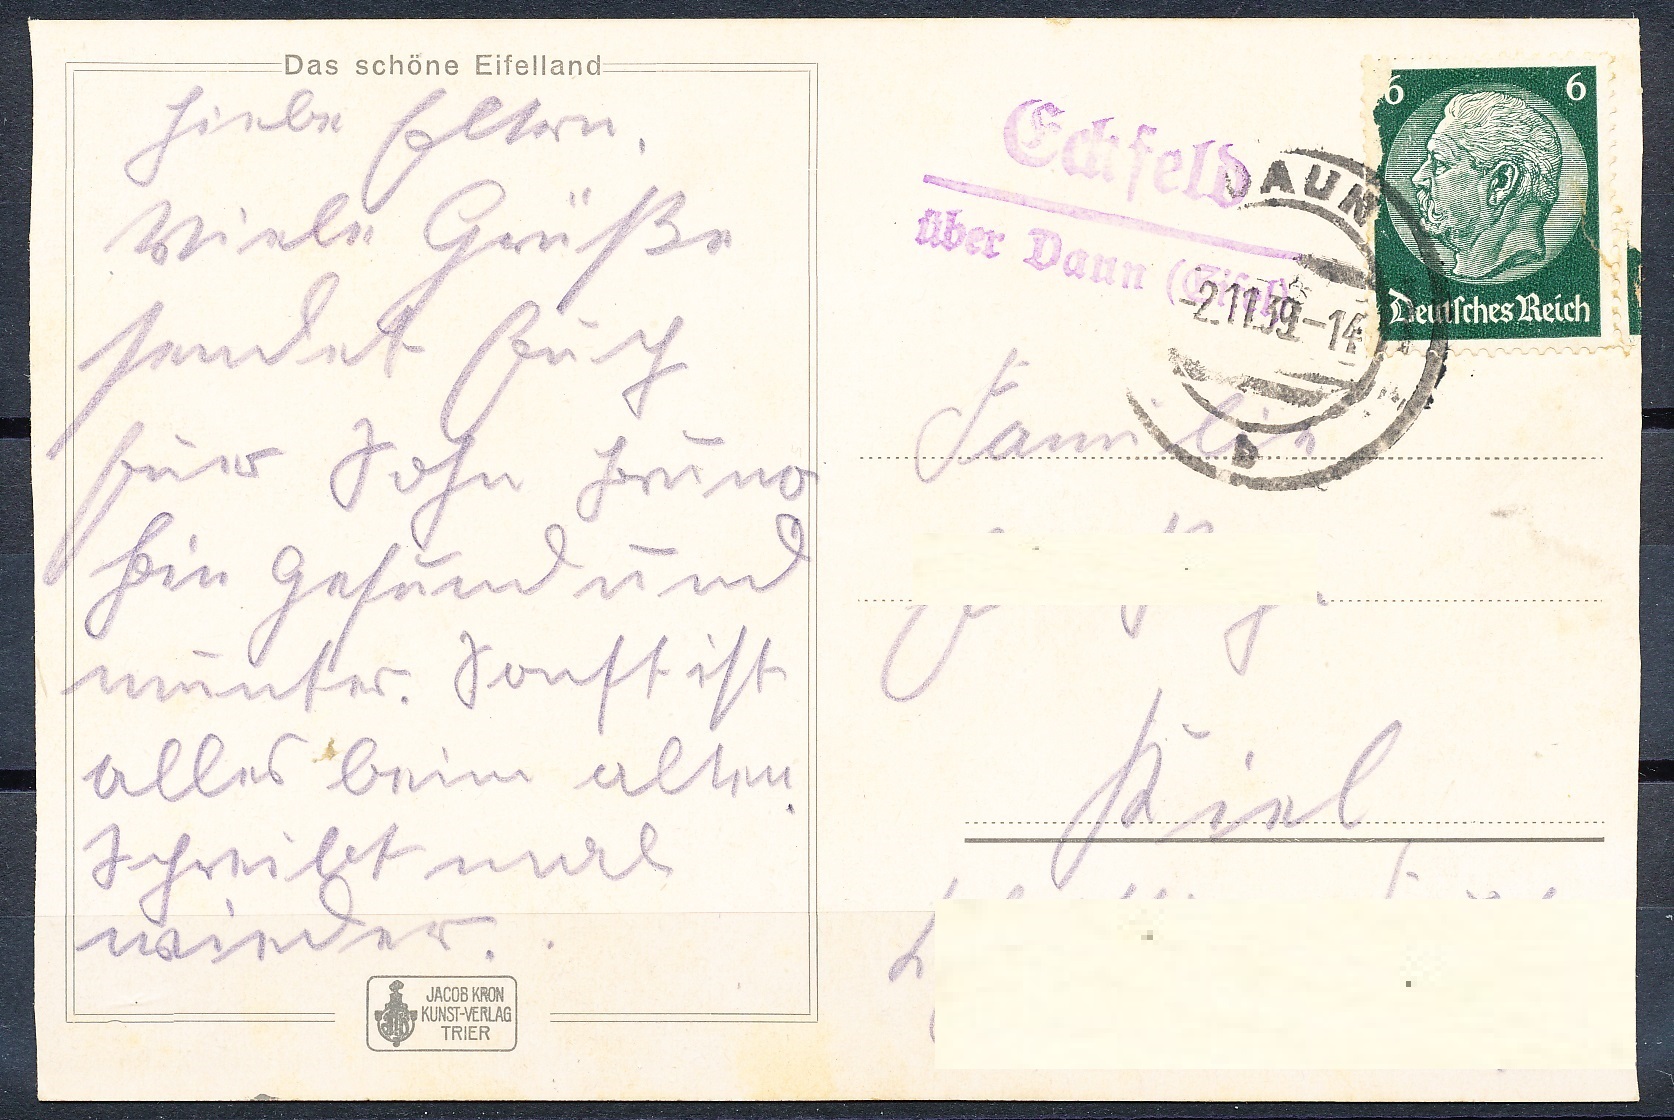 Das schöne Eifelland
Liebe Eltern,
Viele Grüße
sendet Euch
Euer Sohn Bruno
bin gesund und
munter. Sonst ist
alles beim alten
Schreibt mal
wieder.
JACOB KRON
KUNST-VERLAG
TRIER
Eckfeld
über Daun (Eifel)
DAUN
-2.11.39-14
b
6 6
Deutsches Reich
Familie
Kiel